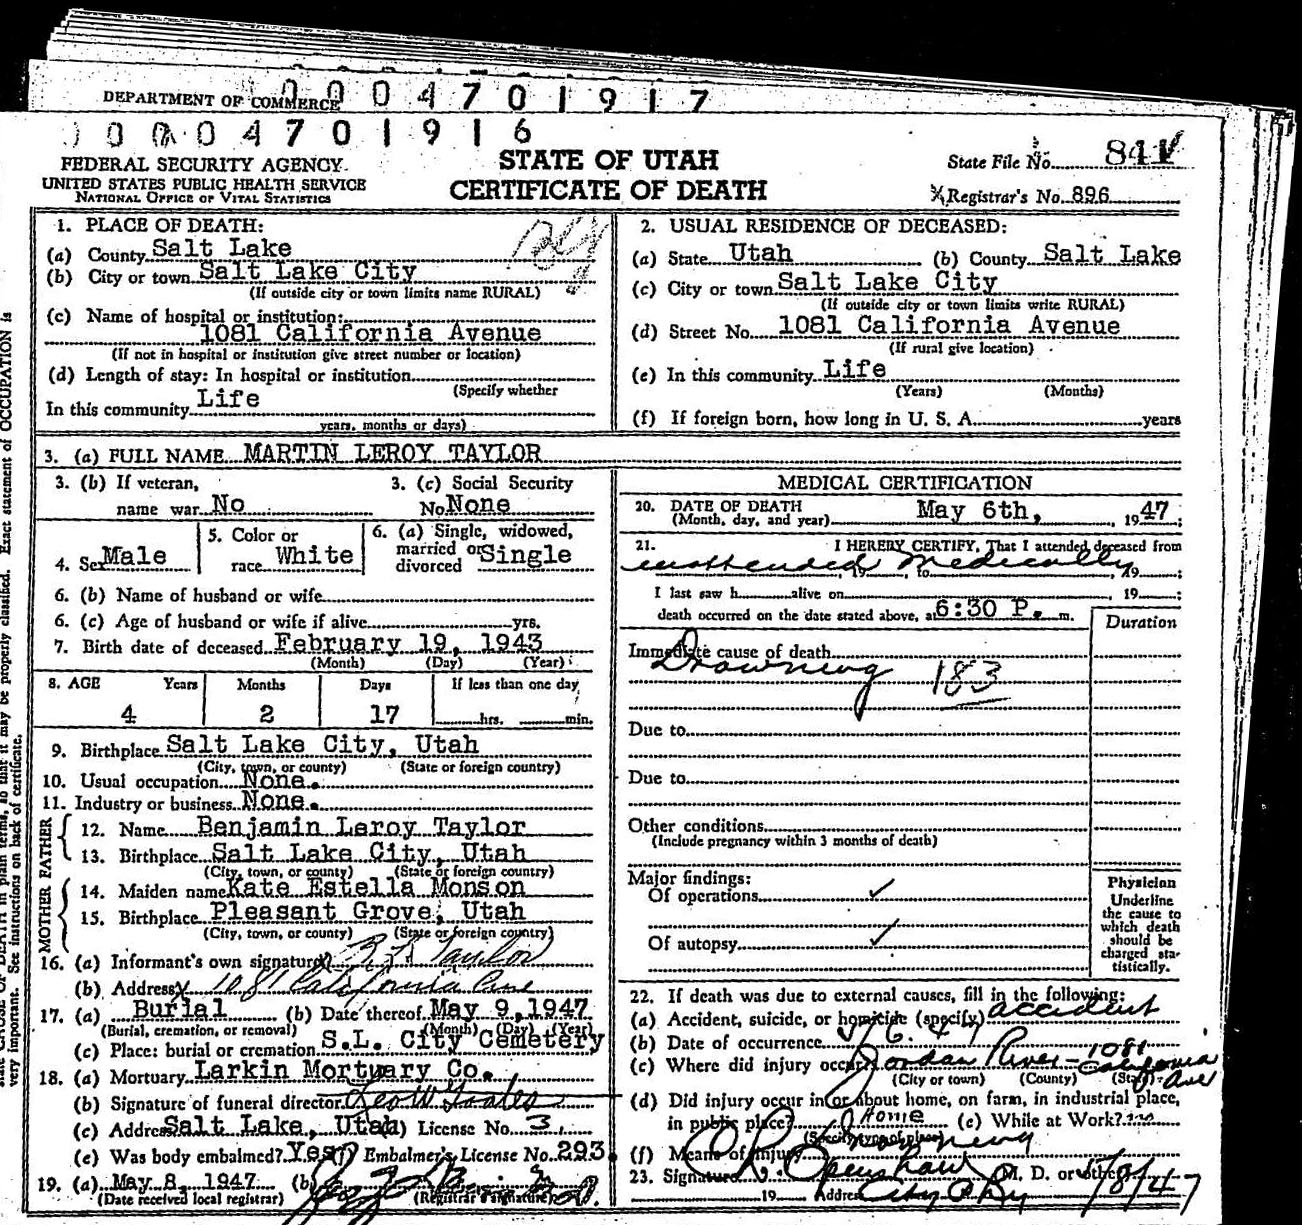 DEPARTMENT OF COMMERCE 0004701917
0004701916
FEDERAL SECURITY AGENCY
UNITED STATES PUBLIC HEALTH SERVICE
NATIONAL OFFICE OF VITAL STATISTICS
STATE OF UTAH
CERTIFICATE OF DEATH
State File No. 841
Registrar's No. 896
1. PLACE OF DEATH:
(a) County Salt Lake
(b) City or town Salt Lake City
(If outside city or town limits name RURAL)
(c) Name of hospital or institution:
1081 California Avenue
(If not in hospital or institution give street number or location)
(d) Length of stay: In hospital or institution
(Specify whether
In this community Life
years, months or days)
2. USUAL RESIDENCE OF DECEASED:
(a) State Utah (b) County Salt Lake
(c) City or town Salt Lake City
(If outside city or town limits write RURAL)
(d) Street No. 1081 California Avenue
(If rural give location)
(e) In this community Life
(Years) (Months)
(f) If foreign born, how long in U. S. A. years
3. (a) FULL NAME MARTIN LEROY TAYLOR
3. (b) If veteran, name war No
3. (c) Social Security No. None
4. Sex Male
5. Color or race White
6. (a) Single, widowed, married or divorced Single
6. (b) Name of husband or wife
6. (c) Age of husband or wife if alive yrs.
7. Birth date of deceased February 19, 1943
(Month) (Day) (Year)
8. AGE Years Months Days If less than one day
4 2 17 hrs. min.
9. Birthplace Salt Lake City, Utah
(City, town, or county) (State or foreign country)
10. Usual occupation None.
11. Industry or business None.
FATHER
12. Name Benjamin Leroy Taylor
13. Birthplace Salt Lake City, Utah
(City, town, or county) (State or foreign country)
MOTHER
14. Maiden name Kate Estella Monson
15. Birthplace Pleasant Grove, Utah
(City, town, or county) (State or foreign country)
16. (a) Informant's own signature Taylor
(b) Address 1081 California Ave
17. (a) Burial (b) Date thereof May 9, 1947
(Burial, cremation, or removal) (Month) (Day) (Year)
(c) Place: burial or cremation S.L. City Cemetery
18. (a) Mortuary Larkin Mortuary Co.
(b) Signature of funeral director
(c) Address Salt Lake, Utah (d) License No. 3.
(e) Was body embalmed? Yes (f) Embalmer's License No. 293.
19. (a) May 8, 1947 (b)
(Date received local registrar) (Registrar's signature)
MEDICAL CERTIFICATION
20. DATE OF DEATH
(Month, day, and year) May 6th, 1947;
21. I HEREBY CERTIFY, That I attended deceased from
unattended medically, 19 , to , 19 ;
I last saw h alive on 19 ;
death occurred on the date stated above, at 6:30 P. m.
Duration
Immediate cause of death
Drowning 183
Due to
Due to
Other conditions
(Include pregnancy within 3 months of death)
Major findings:
Of operations ✓
Of autopsy ✓
Physician
Underline
the cause to
which death
should be
charged sta-
tistically.
22. If death was due to external causes, fill in the following:
(a) Accident, suicide, or homicide (specify) accident
(b) Date of occurrence 5/6. 47
(c) Where did injury occur? Jordan River - 1081 California Ave
(City or town) (County) (State)
(d) Did injury occur in or about home, on farm, in industrial place,
in public place? Home (e) While at Work? no
(Specify type of place)
(f) Means of injury Drowning
23. Signature Openshaw M. D. or other 5/8/47
19 Address